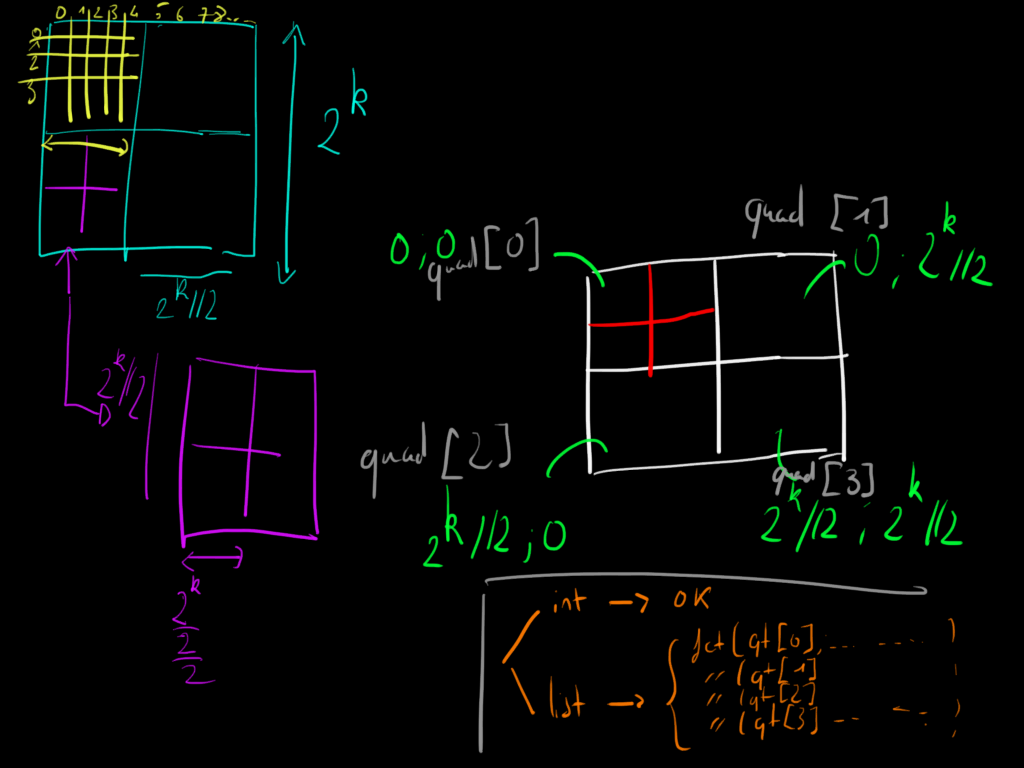 0 1 2 3 4 5 6 7 8...
0
1
2
3
2^k
2^k//2
2^k//2
2^k
2
2
quad [0]
0, 0
quad [1]
0, 2^k//2
quad [2]
2^k//2, 0
quad [3]
2^k//2, 2^k//2
int → OK
list →
fct(qt[0], ... .... )
" (qt[1]
" (qt[2]
" (qt[3] ... )